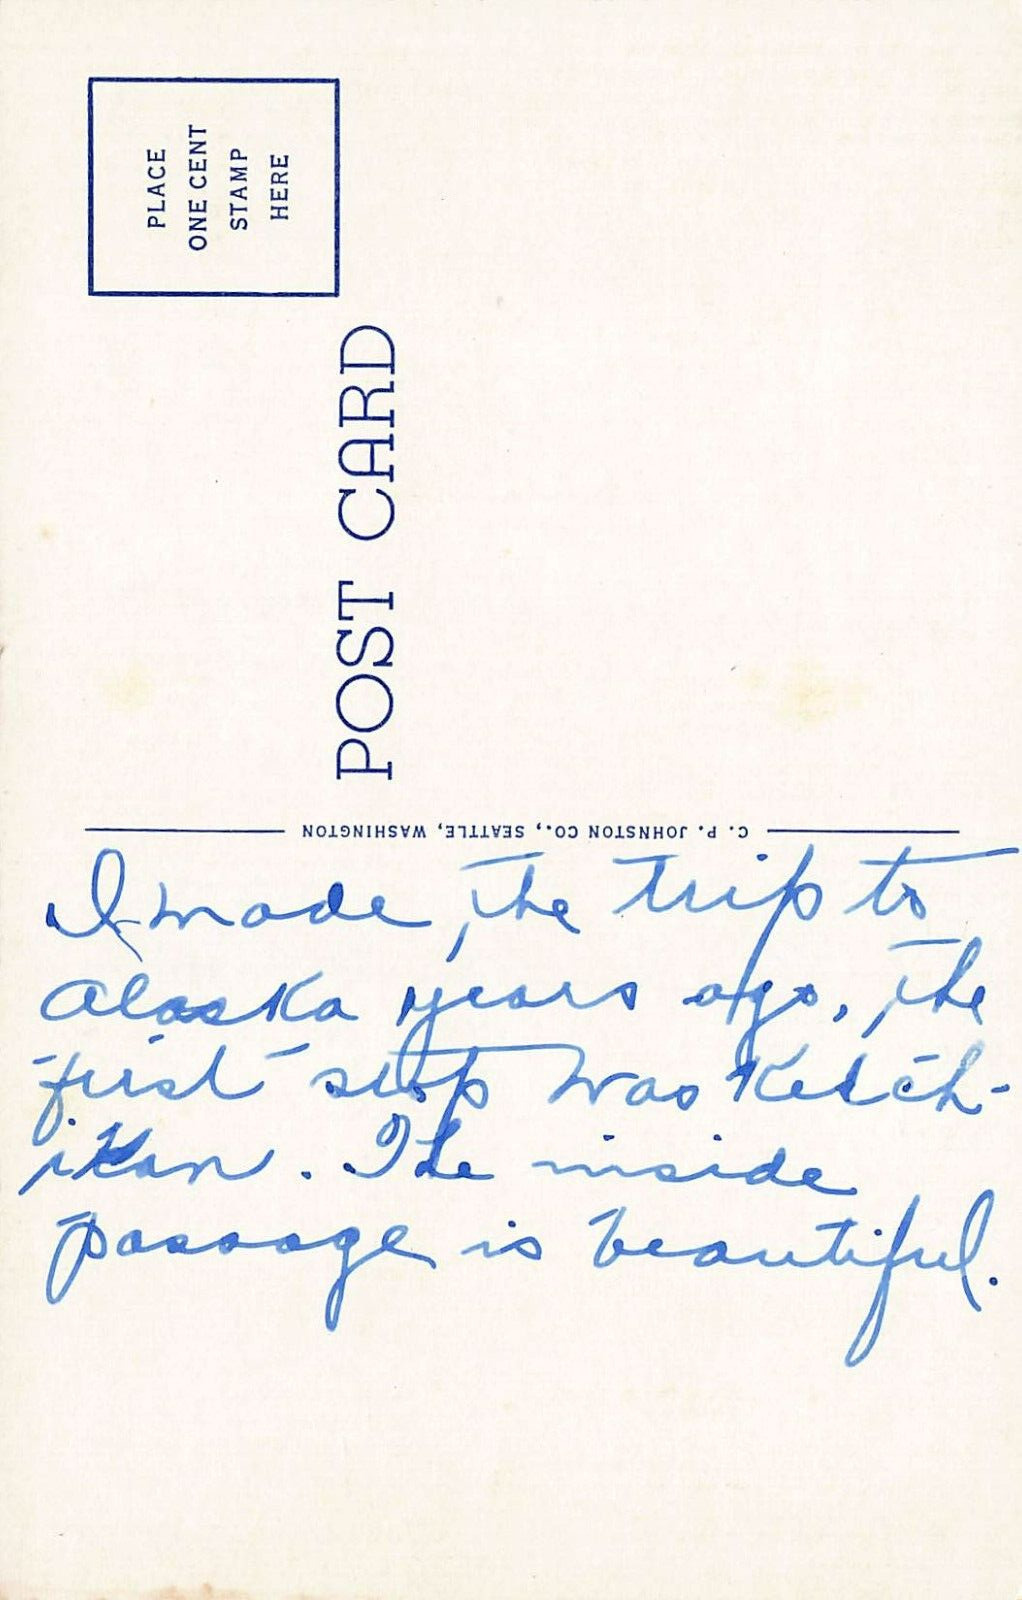 PLACE
ONE CENT
STAMP
HERE
POST CARD
C. P. JOHNSTON CO., SEATTLE, WASHINGTON
I made the trip to
Alaska years ago, the
first stop was Ketch-
ikan. The inside
passage is beautiful.